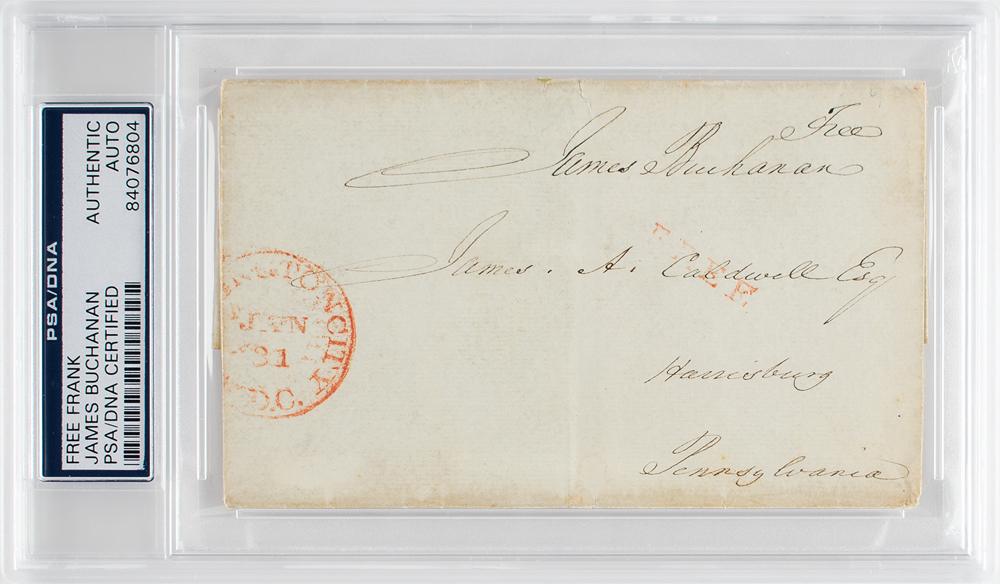 PSA/DNA
FREE FRANK
JAMES BUCHANAN
PSA/DNA CERTIFIED
AUTHENTIC
AUTO
84076804
Free
James Buchanan
James. A. Caldwell Esq
Harrisburg
Pennsylvania
FREE
TON CITY
JAN
31
D.C.